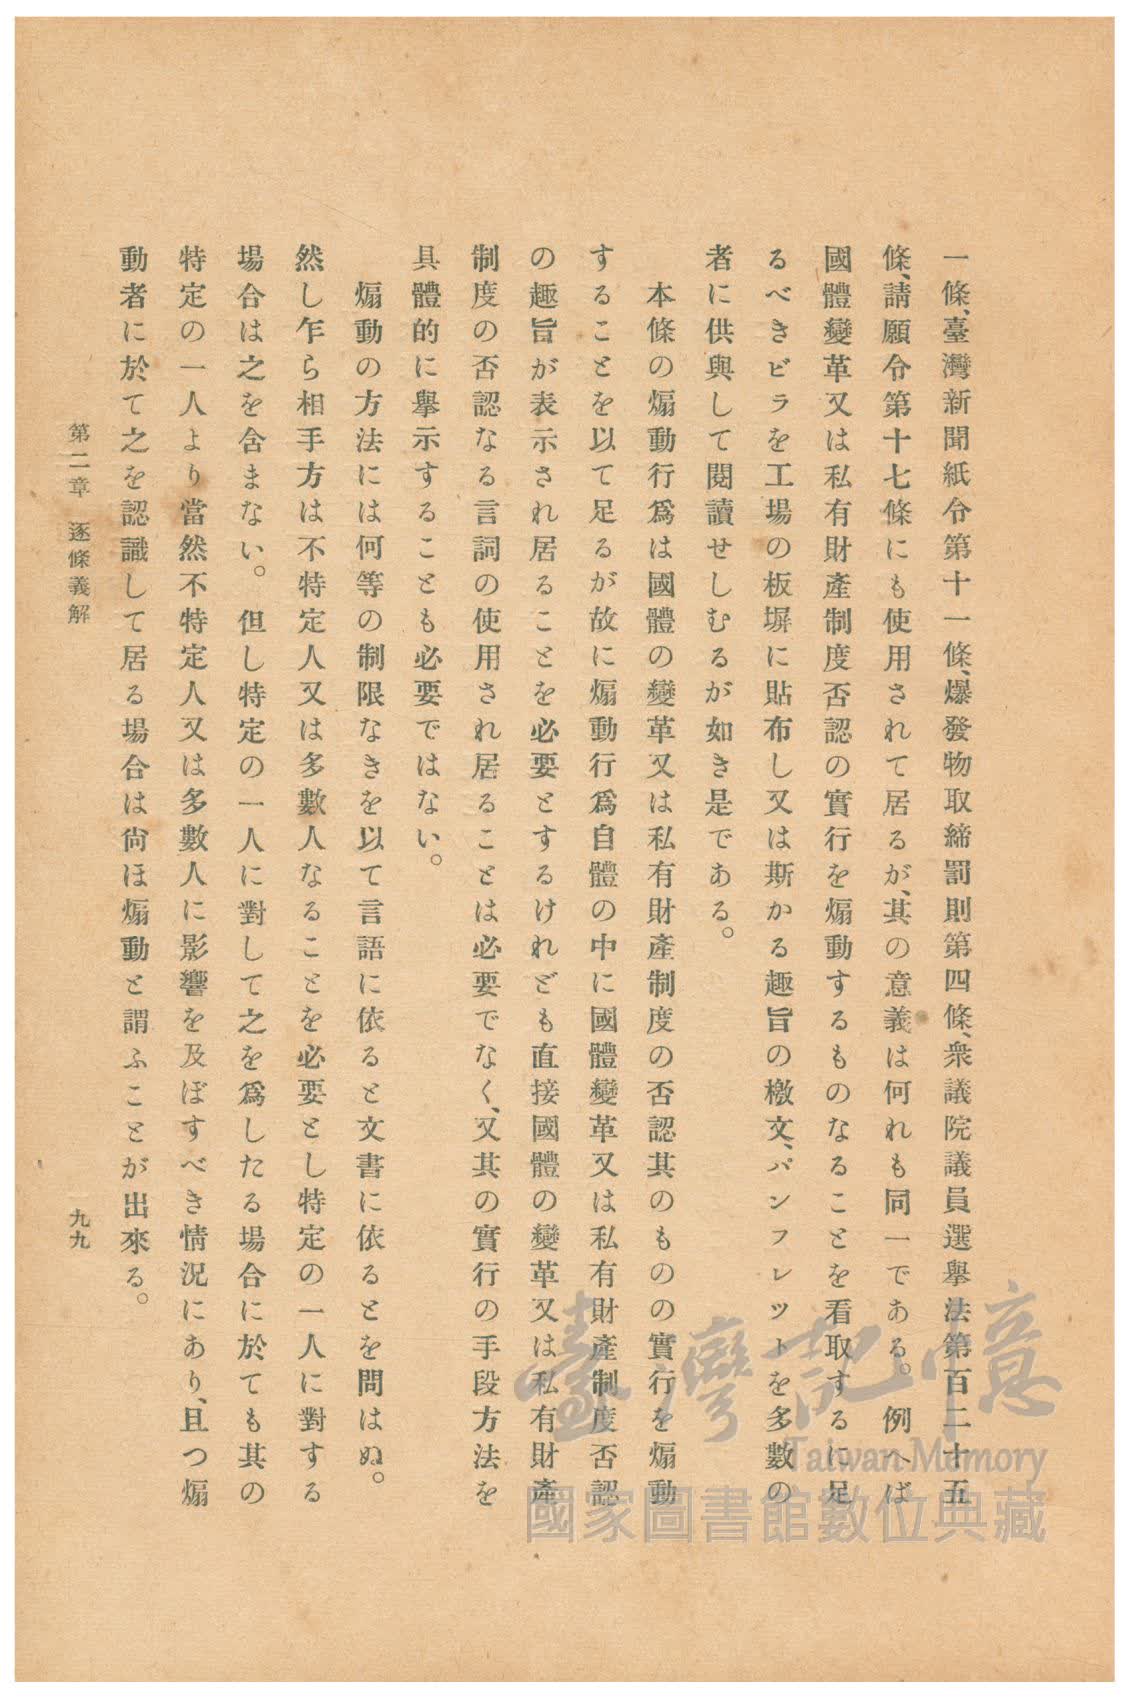 一條、臺灣新聞紙令第十一條、爆發物取締罰則第四條、衆議院議員選擧法第百二十五
條、請願令第十七條にも使用されて居るが、其の意義は何れも同一である。例へば
國體變革又は私有財產制度否認の實行を煽動するものなることを看取するに足
るべきビラを工場の板塀に貼布し又は斯かる趣旨の檄文、パンフレツトを多數の
者に供與して閱讀せしむるが如き是である。
本條の煽動行爲は國體の變革又は私有財產制度の否認其のものの實行を煽動
することを以て足るが故に煽動行爲自體の中に國體變革又は私有財產制度否認
の趣旨が表示され居ることを必要とするけれども直接國體の變革又は私有財產
制度の否認なる言詞の使用され居ることは必要でなく、又其の實行の手段方法を
具體的に擧示することも必要ではない。
煽動の方法には何等の制限なきを以て言語に依ると文書に依るとを問はぬ。
然し乍ら相手方は不特定人又は多數人なることを必要とし特定の一人に對する
場合は之を含まない。但し特定の一人に對して之を爲したる場合に於ても其の
特定の一人より當然不特定人又は多數人に影響を及ぼすべき情況にあり、且つ煽
動者に於て之を認識して居る場合は尙ほ煽動と謂ふことが出來る。
第二章 逐條義解
九九
臺灣記憶
Taiwan Memory
國家圖書館數位典藏